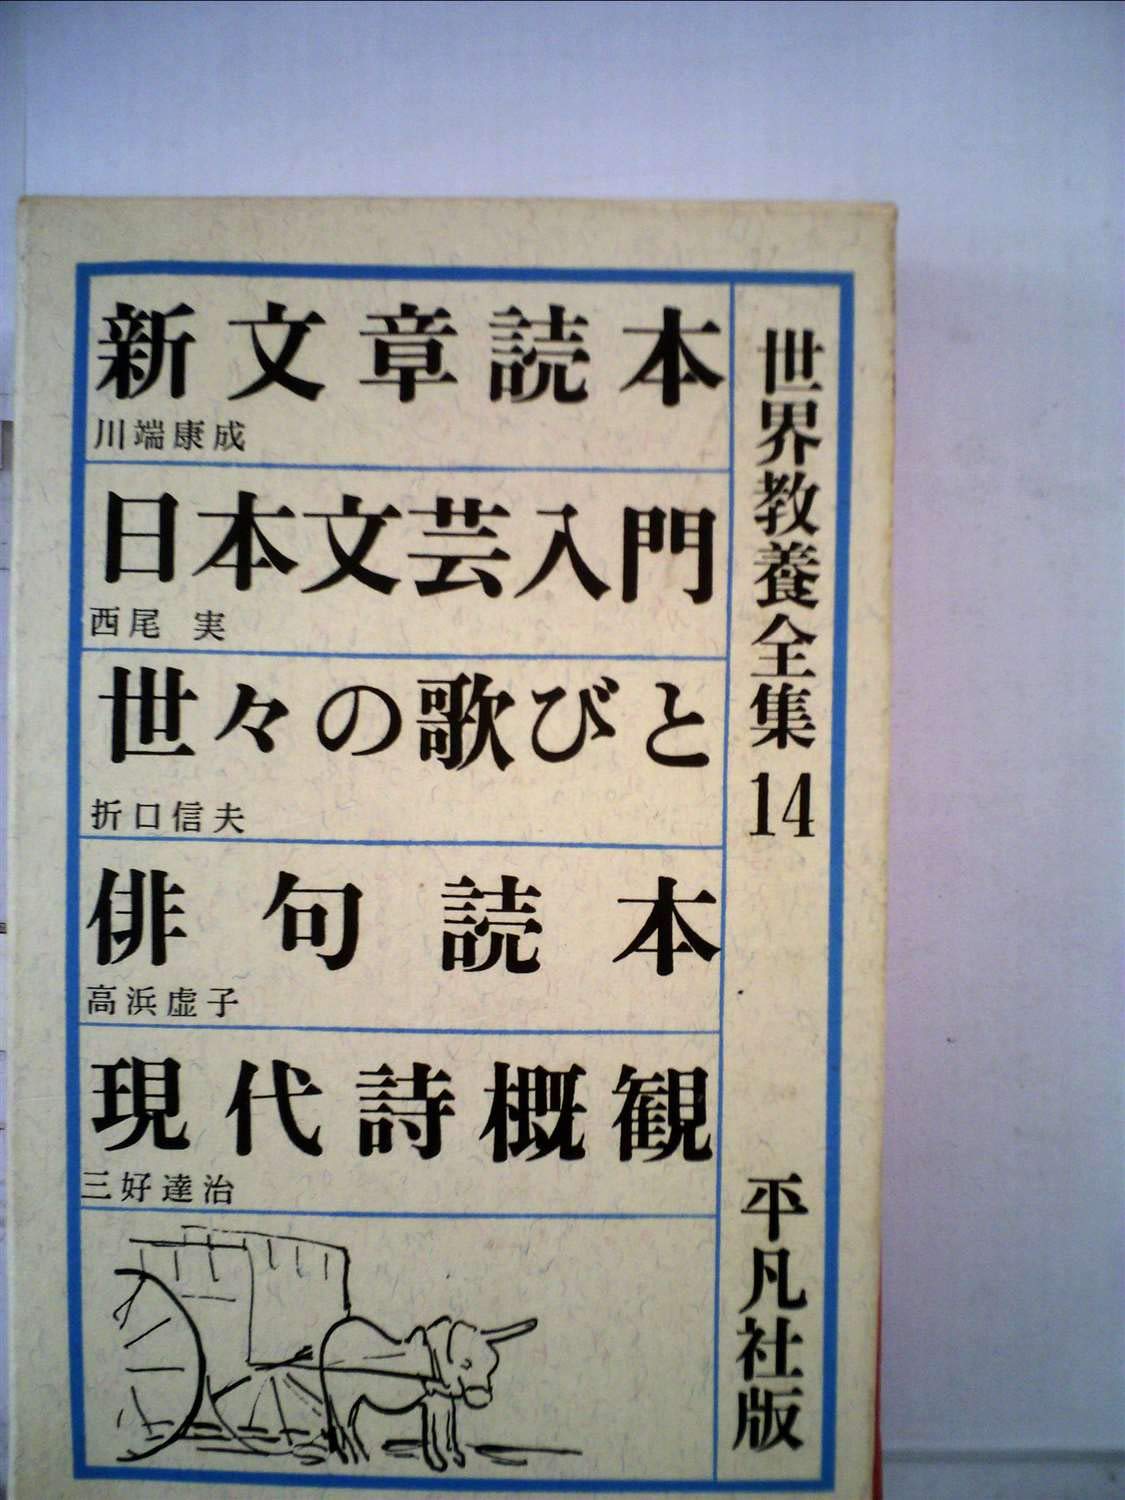 新文章読本
川端康成
日本文芸入門
西尾 実
世々の歌びと
折口信夫
俳句読本
高浜虚子
現代詩概観
三好達治
世界教養全集 14
平凡社版